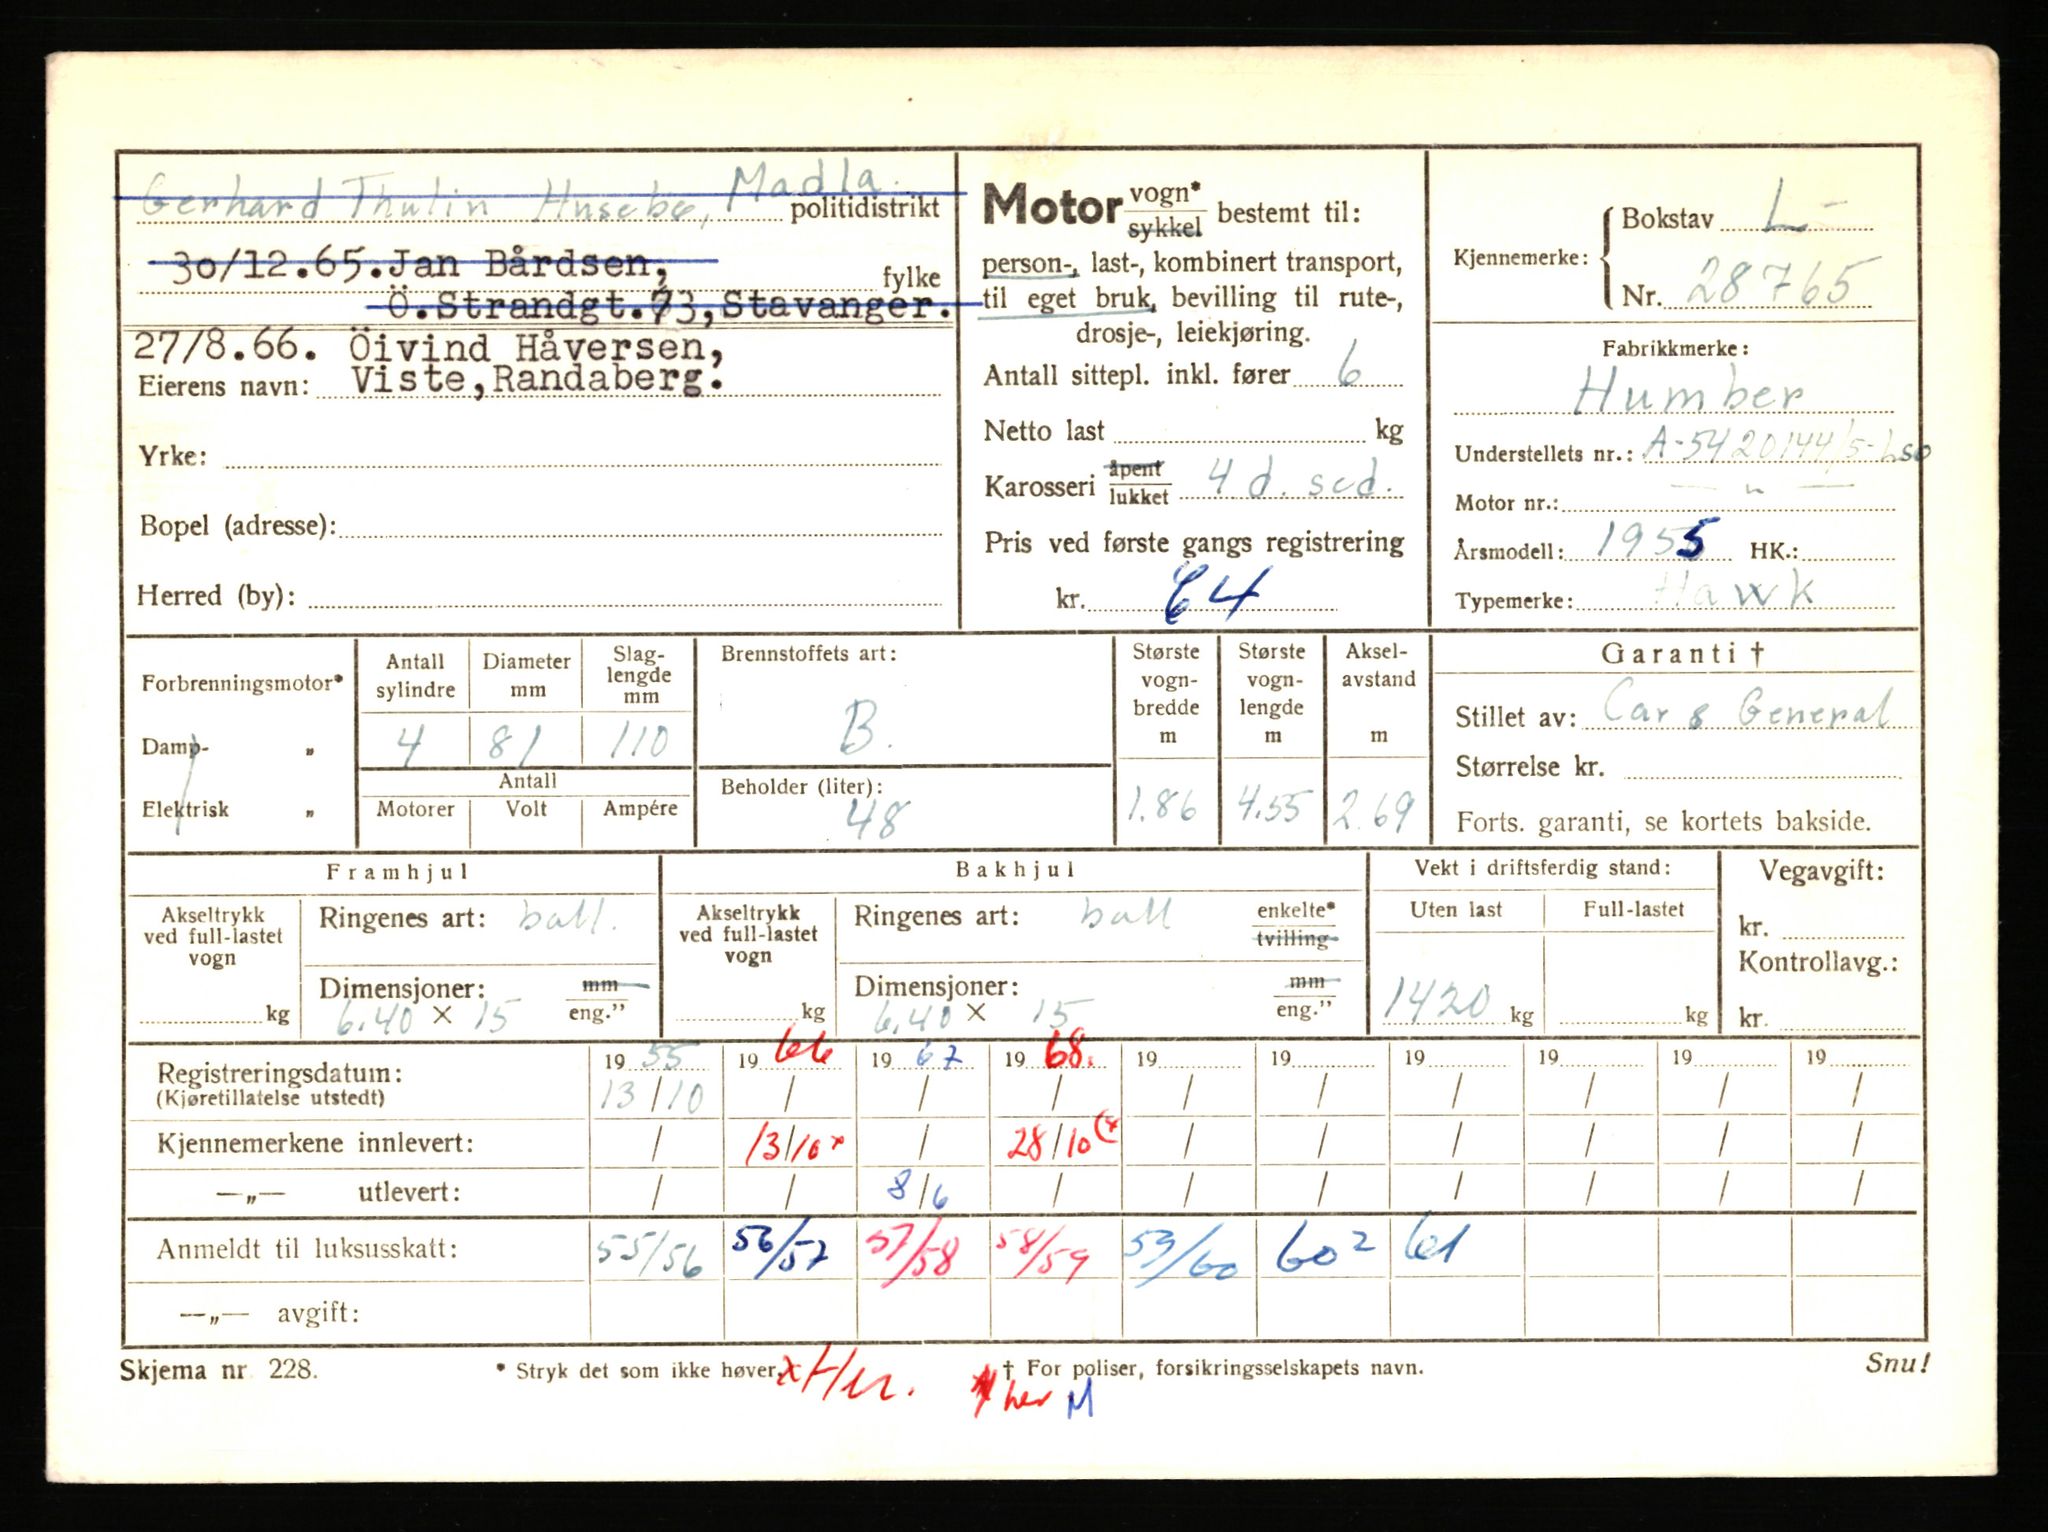 Gerhard Thulin Husebø, Madla.
politidistrikt
30/12.65. Jan Bårdsen,
fylke
Ö.Strandgt.73, Stavanger.
27/8.66. Öivind Håversen,
Eierens navn: Viste, Randaberg.
Yrke:
Bopel (adresse):
Herred (by):
Motor vogn* sykkel bestemt til:
person-, last-, kombinert transport,
til eget bruk, bevilling til rute-,
drosje-, leiekjøring.
Antall sittepl. inkl. fører 6
Netto last kg
Karosseri åpent lukket 4 d. sed.
Pris ved første gangs registrering
kr. 64
Kjennemerke: Bokstav L-
Nr. 28765
Fabrikkmerke:
Humber
Understellets nr.: A-5420144/5-LSO
Motor nr.: — " —
Årsmodell: 1955 HK.:
Typemerke: Hawk
Forbrenningsmotor*
Damp- „
Elektrisk „
Antall sylindre
Diameter mm
Slag-lengde mm
4 81 110
Antall
Motorer Volt Ampére
Brennstoffets art:
B.
Beholder (liter):
48
Største vogn-bredde m
1.86
Største vogn-lengde m
4.55
Aksel-avstand m
2.69
Garanti †
Stillet av: Car & General
Størrelse kr.
Forts. garanti, se kortets bakside.
Framhjul
Akseltrykk ved full-lastet vogn
kg
Ringenes art: ball.
Dimensjoner: mm eng."
6.40 × 15
Bakhjul
Akseltrykk ved full-lastet vogn
kg
Ringenes art: ball enkelte* tvilling
Dimensjoner: mm eng."
6.40 × 15
Vekt i driftsferdig stand:
Uten last Full-lastet
1420 kg kg
Vegavgift:
kr.
Kontrollavg.:
kr.
19 55 19 66 19 67 19 68. 19 19 19 19 19 19
Registreringsdatum:
(Kjøretillatelse utstedt) 13/10 / / / / / / / / /
Kjennemerkene innlevert: / 13/10 x / 28/10 (x / / / / / /
—„— utlevert: / / 8/6 / / / / / / /
Anmeldt til luksusskatt: 55/56 56/57 57/58 58/59 59/60 60 2 61
—„— avgift:
Skjema nr. 228.
* Stryk det som ikke høver.
† For poliser, forsikringsselskapets navn.
Snu!
her M